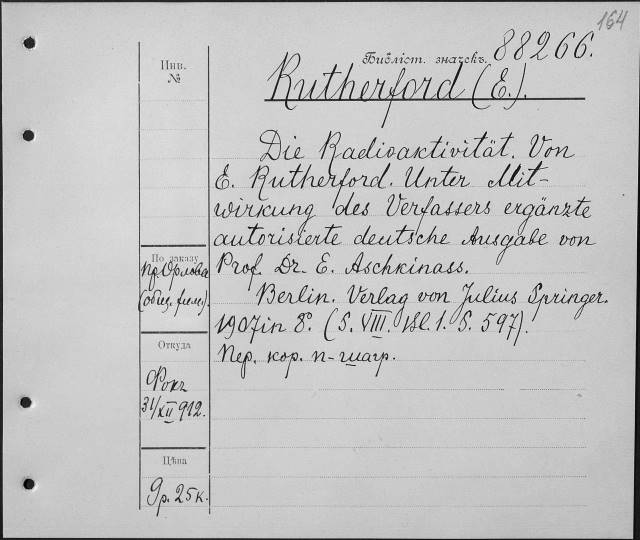 164
Библіот. значекъ. 88266.
Инв.
№
Rutherford (E.).
Die Radioaktivität. Von
E. Rutherford. Unter Mit-
wirkung des Verfassers ergänzte
autorisierte deutsche Ausgabe von
Prof. Dr. E. Aschkinass.
Berlin. Verlag von Julius Springer.
1907 in 8°. (S. VIII. Bl. 1. S. 597).
Пер. кор. п-шагр.
По заказу
пр. Орлова
(общ. физ.)
Откуда
Фокъ
31/XII 912.
Цѣна
9р. 25к.